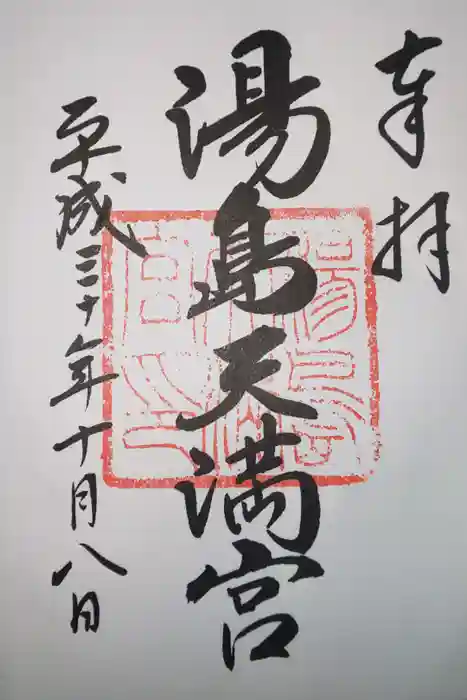 奉拝
湯島天満宮
平成三十年十月八日